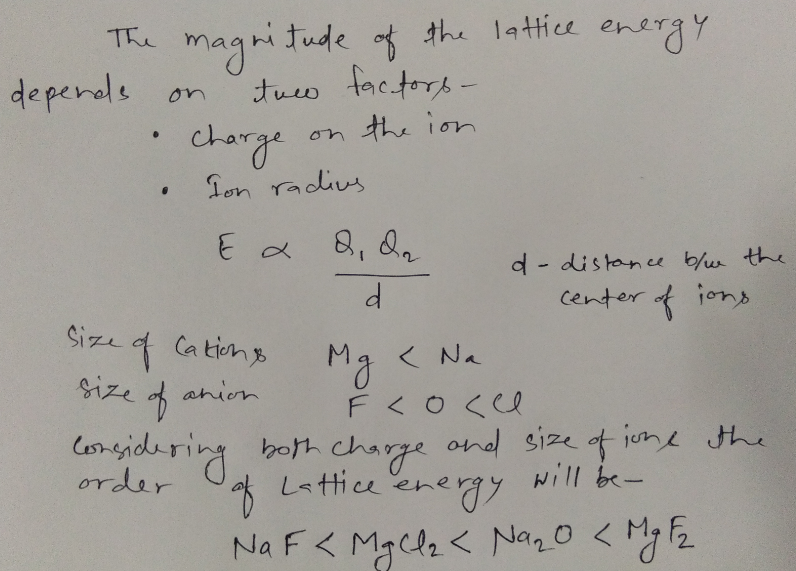 The magnitude of the lattice energy
depends on two factors-
• charge on the ion
• Ion radius
E ∝ Q₁ Q₂ / d
d - distance b/w the
center of ions
Size of Cations Mg < Na
Size of anion F < O < Cl
Considering both charge and size of ions the
order of Lattice energy will be-
NaF < MgCl₂ < Na₂O < MgF₂